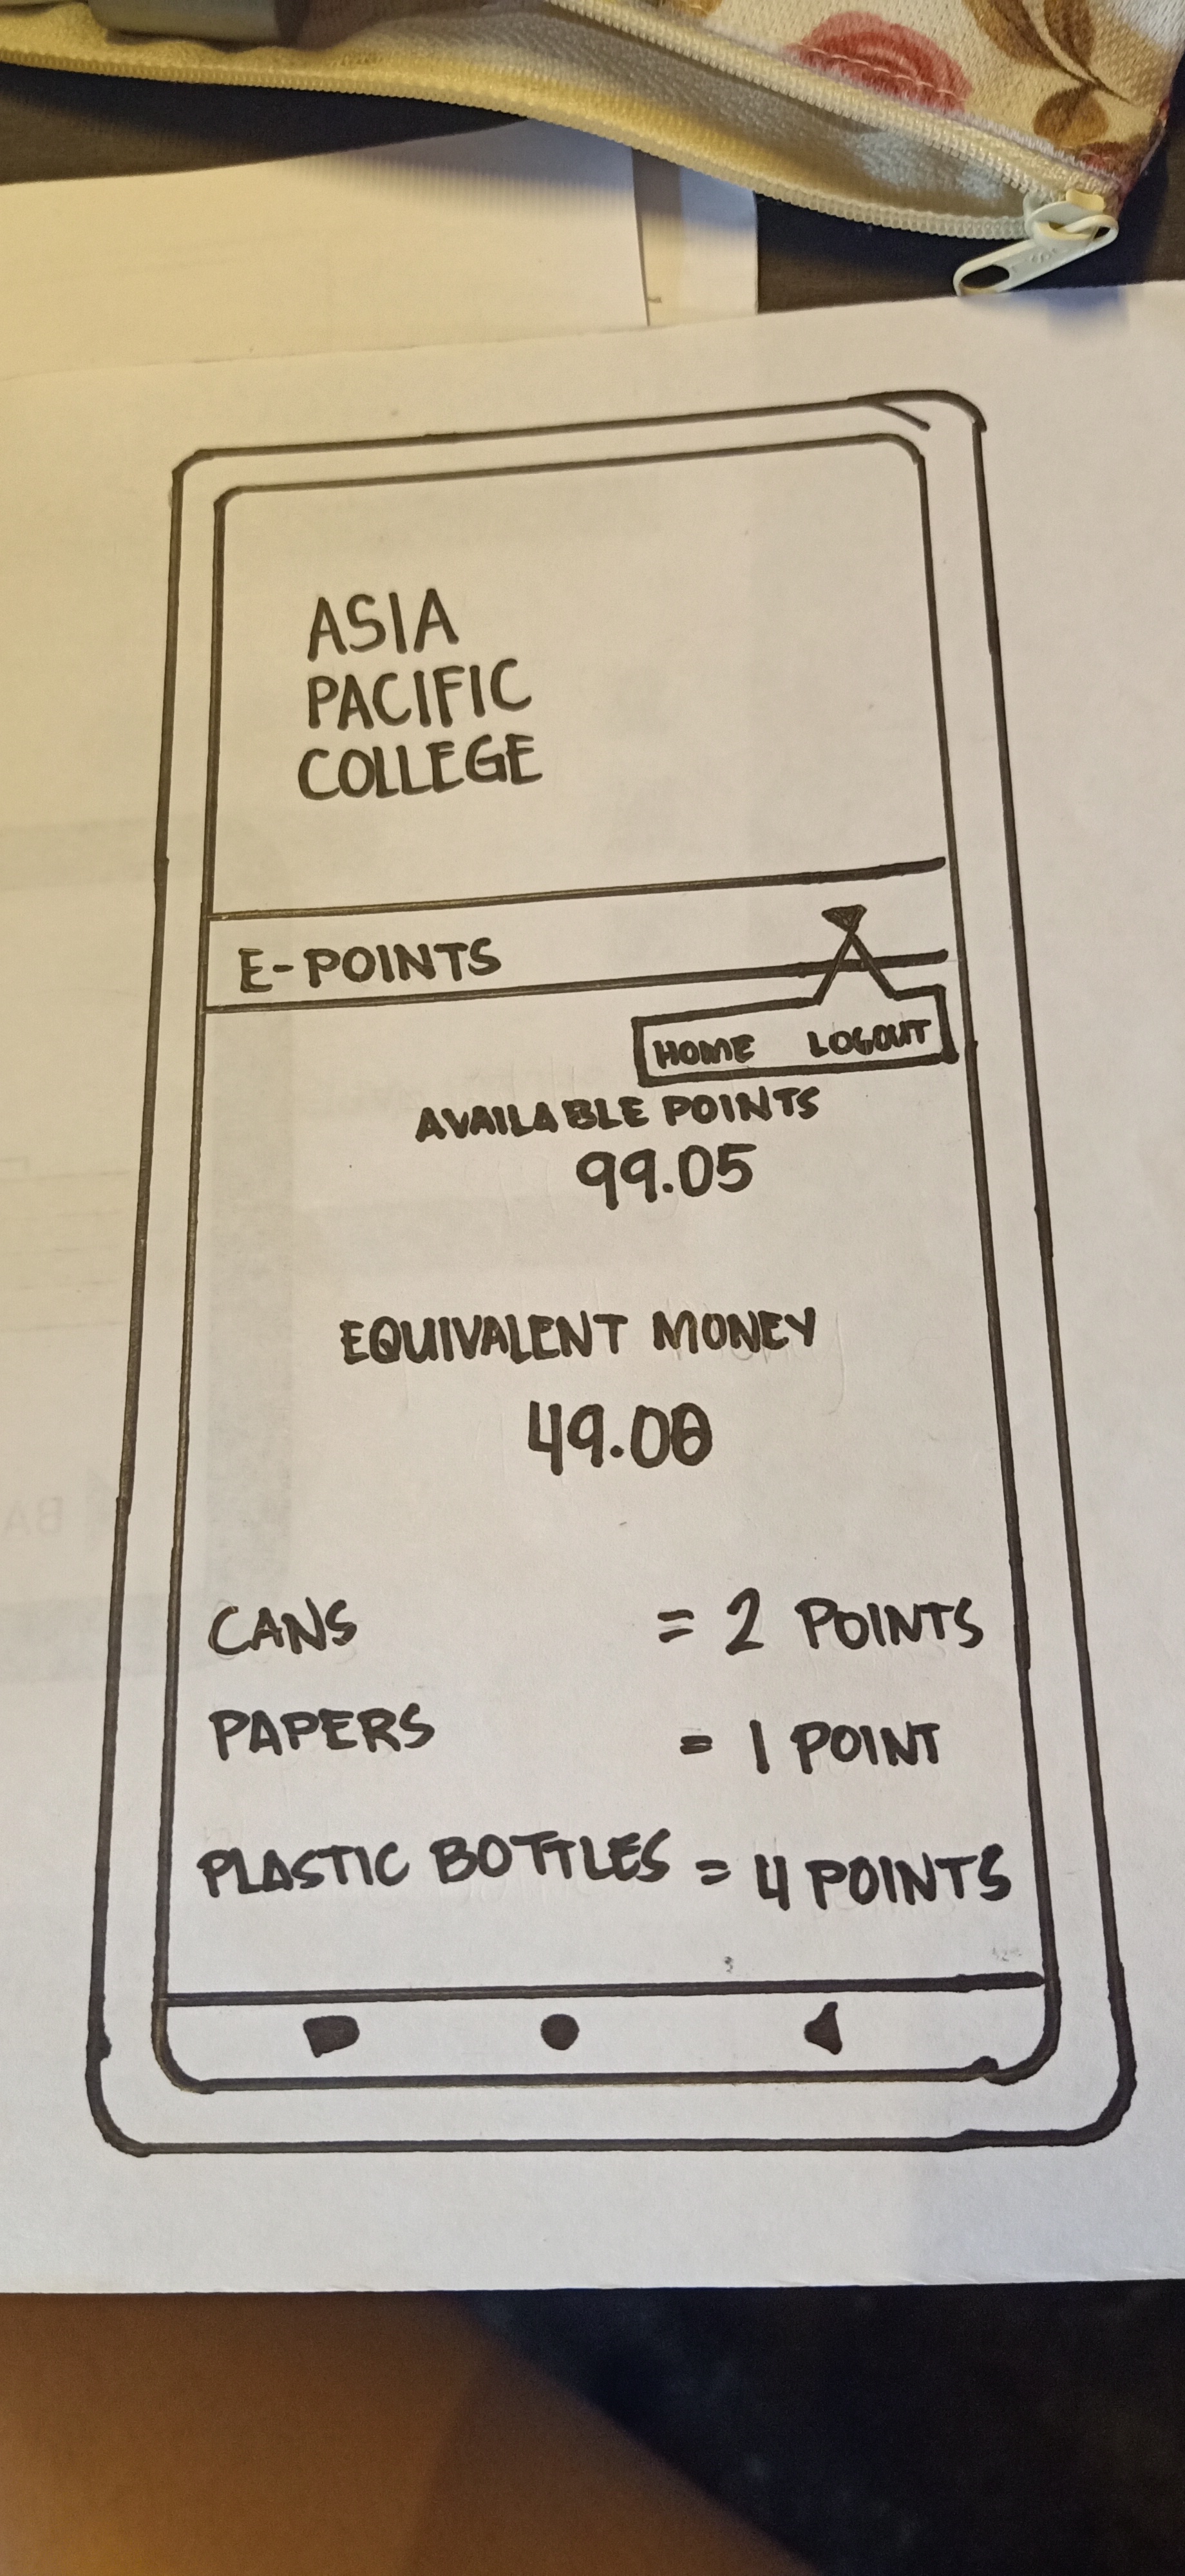 ASIA
PACIFIC
COLLEGE
E-POINTS
HOME LOGOUT
AVAILABLE POINTS
99.05
EQUIVALENT MONEY
49.00
CANS = 2 POINTS
PAPERS = 1 POINT
PLASTIC BOTTLES = 4 POINTS